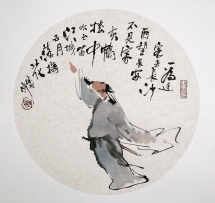 一為遷
客去長沙
西望長安
不見家
黃鶴
樓中
吹玉笛
江城
五月
落梅
花